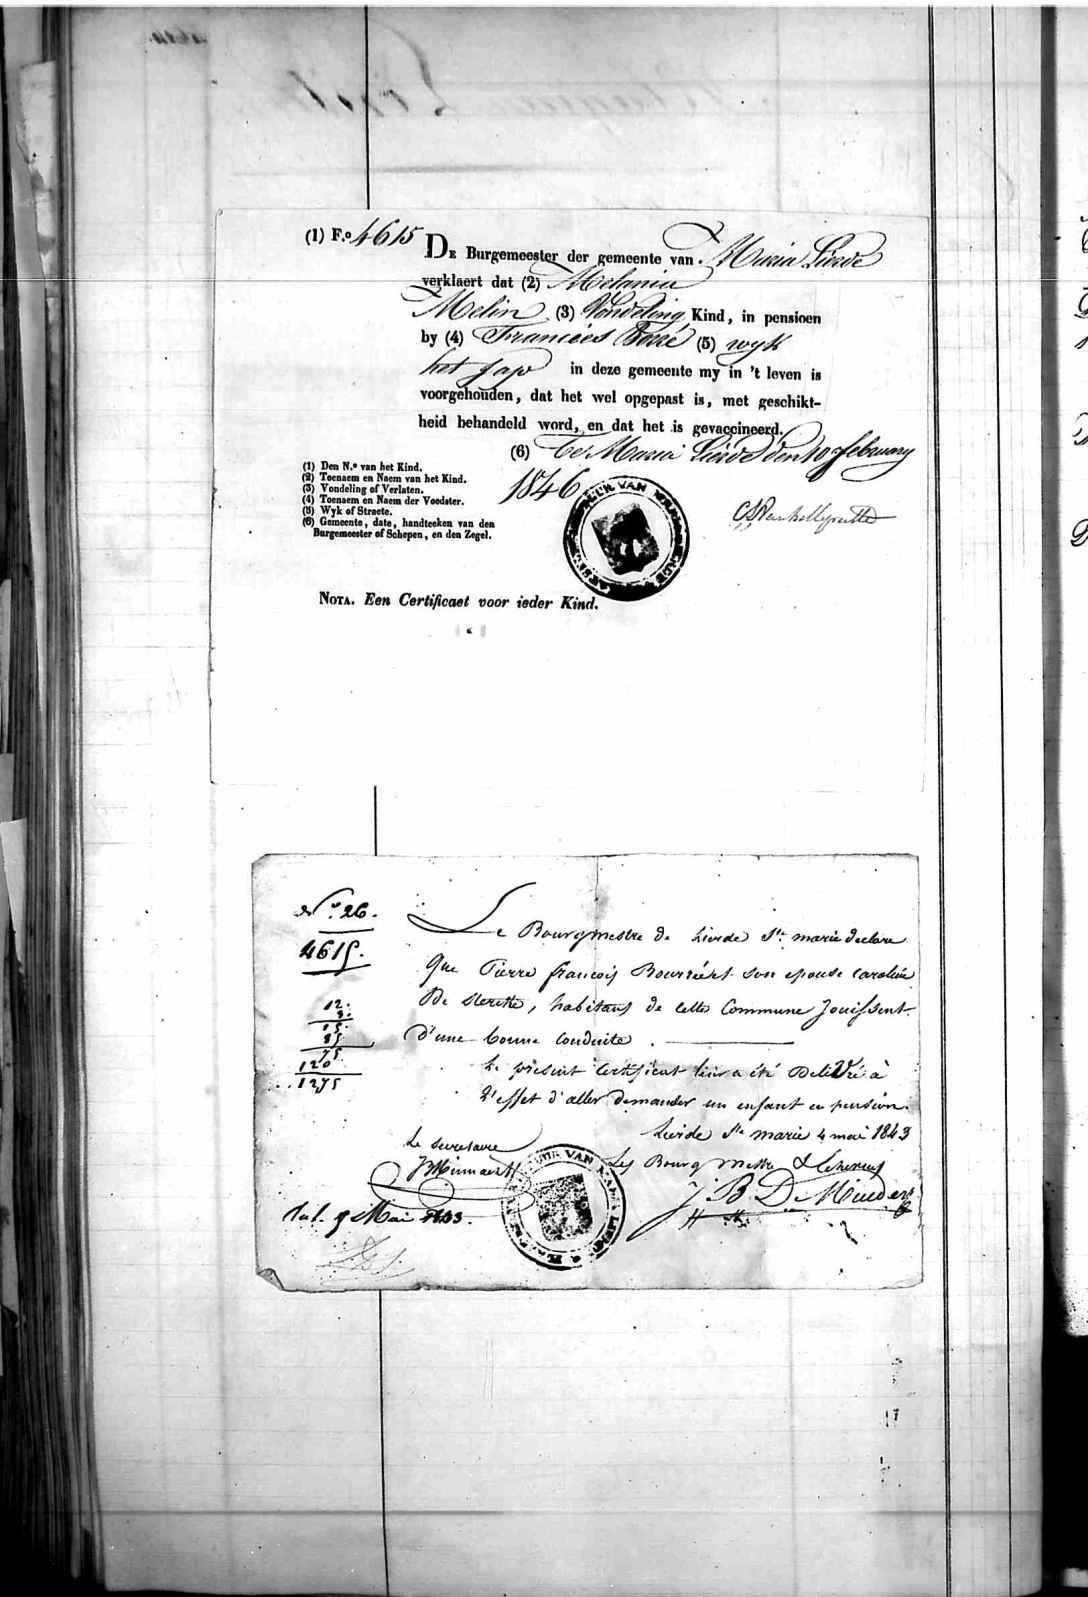 (1) F.º 4615
DE Burgemeester der gemeente van Maria Lierde
verklaert dat (2) Melania
Melin (3) Vondeling Kind, in pensioen
by (4) Francies (5) wyk
het in deze gemeente my in 't leven is
voorgehouden, dat het wel opgepast is, met geschikt-
heid behandeld word, en dat het is gevaccineerd.
(6) Te Maria Lierde den 10 february
1846
(1) Den N.º van het Kind.
(2) Toenaem en Naem van het Kind.
(3) Vondeling of Verlaten.
(4) Toenaem en Naem der Voedster.
(5) Wyk of Straete.
(6) Gemeente, date, handteeken van den
Burgemeester of Schepen, en den Zegel.
NOTA. Een Certificaet voor ieder Kind.
Nº. 26.
4615.
12.
3.
15.
85
75
120
1275
Le Bourgmestre de Lierde Ste. marie declare
que Pierre françois son epouse caroline
De , habitans de cette Commune Jouissent
d'une bonne conduite.
Le présent Certificat leur a été Delivré à
l'effet d'aller Demander un enfant en pension.
Lierde Ste marie 4 mai 1843
Le secretaire
Les Bourgmestre & Echevins
J B De Mulder
9 Mai 1843.